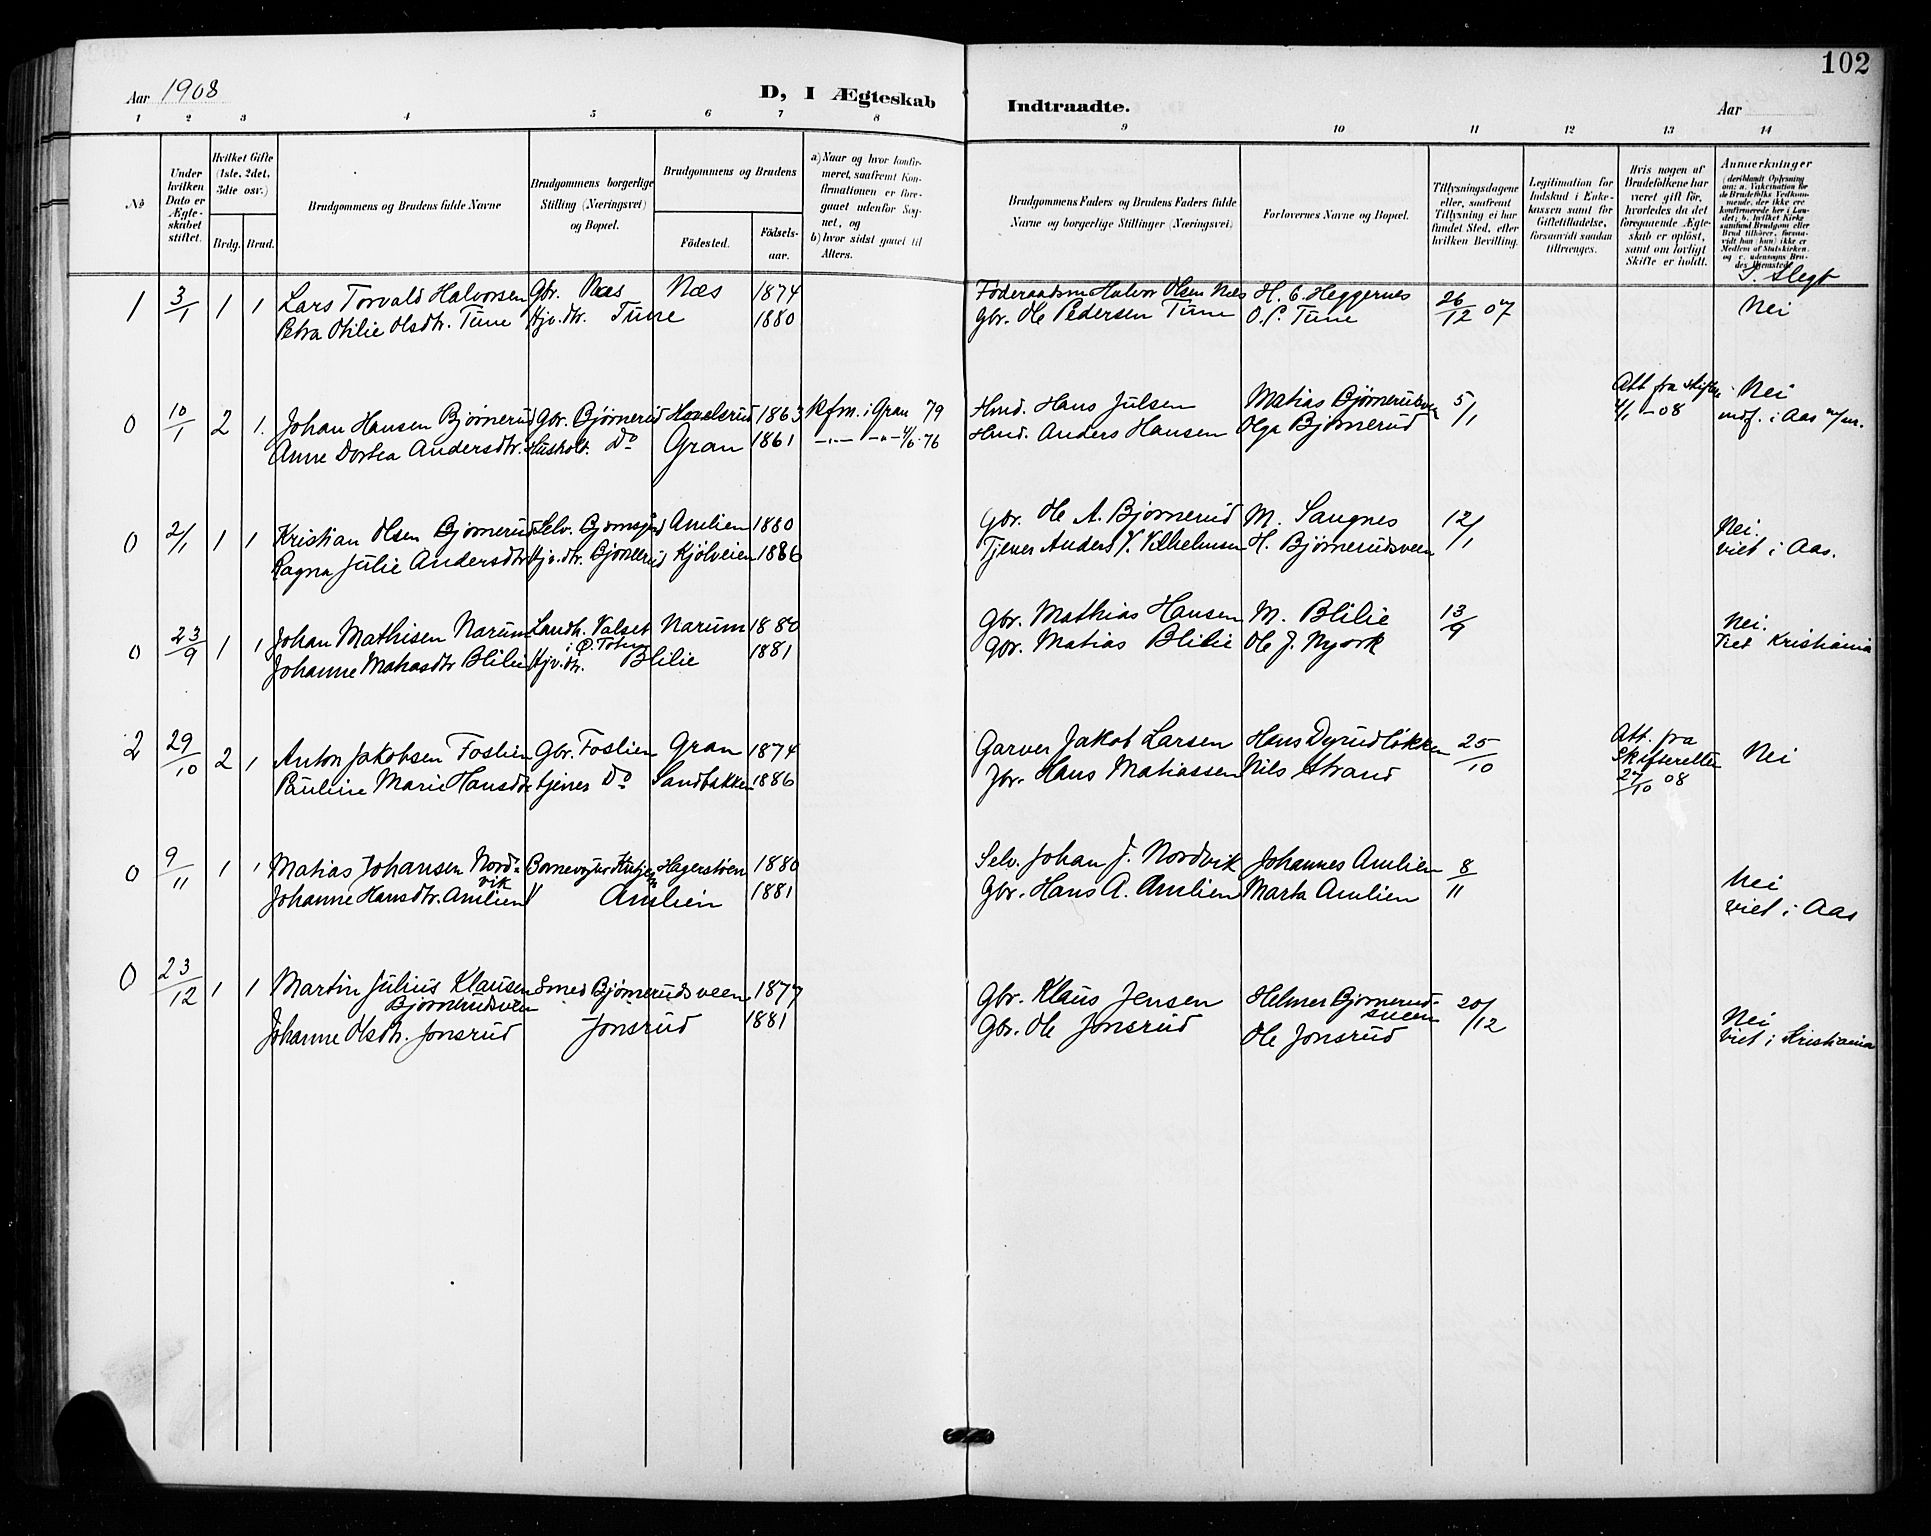 102
Aar 1908
D, I Ægteskab Indtraadte.
Aar
1 2 3 4 5 6 7 8 9 10 11 12 13 14
No
Under hvilken Dato er Ægteskabet stiftet.
Hvilket Gifte (1ste, 2det, 3die osv.)
Brdg. Brud.
Brudgommens og Brudens fulde Navne
Brudgommens borgerlige Stilling (Næringsvei) og Bopæl.
Brudgommens og Brudens
Fødested.
Fødselsaar.
a) Naar og hvor konfirmeret, saafremt Konfirmationen er foregaaet udenfor Sognet, og
b) hvor sidst gaaet til Alters.
Brudgommens Faders og Brudens Faders fulde Navne og borgerlige Stillinger (Næringsvei)
Forlovernes Navne og Bopæl.
Tillysningsdagene eller, saafremt Tillysning ei har fundet Sted, efter hvilken Bevilling.
Legitimation for Indskud i Enkekassen samt for Giftetilladelse, forsaavidt saadan tiltrænges.
Hvis nogen af Brudefolkene har været gift før, hvorledes da det foregaaende Ægteskab er opløst, samt om lovligt Skifte er holdt.
Anmerkninger
S. Slegt
1 3/1 1 1 Lars Torvald Halvorsen Gbr. Næs Næs 1874 Føderaadsm Halvor Olsen Næs H. C. Heggernes 26/12 07 Nei
Petra Otilie Olsdtr. Tune Hjv. dtr. Tune 1880 Gbr. Ole Pedersen Tune O. P. Tune
0 10/1 2 1. Johan Hansen Bjørnerud Gbr. Bjørnerud Hovelsrud 1863 Kfm. i Gran 79 Hmd. Hans Julsen Matias Bjørnerudsven 5/1 Att. fra skifter 4/1 - 08 Nei
Anne Dortea Andersdtr. Hushold. Do Gran 1861 4/6 76 Hmd. Anders Hansen Olga Bjørnerud indf. i Aas
0 21/1 1 1 Kristian Olsen Bjørnerud Selv. Bjørnsgård Amlien 1880 Gbr. Ole A. Bjørnerud M. Sangnes 12/1 Nei.
Ragna Julie Andersdtr Hjv. dtr. Bjørnerud Kjølveien 1886 Tjener Anders V. Vilhelmsen H. Bjørnerudsveen viet i Aas.
0 23/9 1 1 Johan Mathisen Narum Landh. Valset i Ø. Toten Narum 1880 Gbr. Mathias Hansen M. Blilie 13/9 Nei.
Johanne Matiasdtr Blilie Hjv. dtr. Blilie 1881 Gbr. Matias Blilie Ole J. Nyork Viet Kristiania
2 29/10 2 1 Anton Jakobsen Foslien Gbr. Foslien Gran 1874 Garver Jakob Larsen Hans Dyrudløkken 25/10 Att. fra Skifteretten 27/10 08 Nei
Pauline Marie Hansdtr tjenes Do Sandbakken 1886 Gbr. Hans Matiassen Nils Strand
0 9/11 1 1 Matias Johansen Nordvik Hagerstoen 1880 Selv. Johan J. Nordvik Johannes Amlien 8/11 Nei
Johanne Hansdtr. Amlien " Amlien 1881 Gbr. Hans A. Amlien Marta Amlien viet i Aas
0 23/12 1 1 Martin Julius Klausen Bjørnerudsven Smed Bjørnerudsveen 1877 Gbr. Klaus Jensen Helmer Bjørnerudsveen 20/12 Nei
Johanne Olsdtr. Jonsrud Jonsrud 1881 Gbr. Ole Jonsrud Ole Jonsrud viet i Kristiania